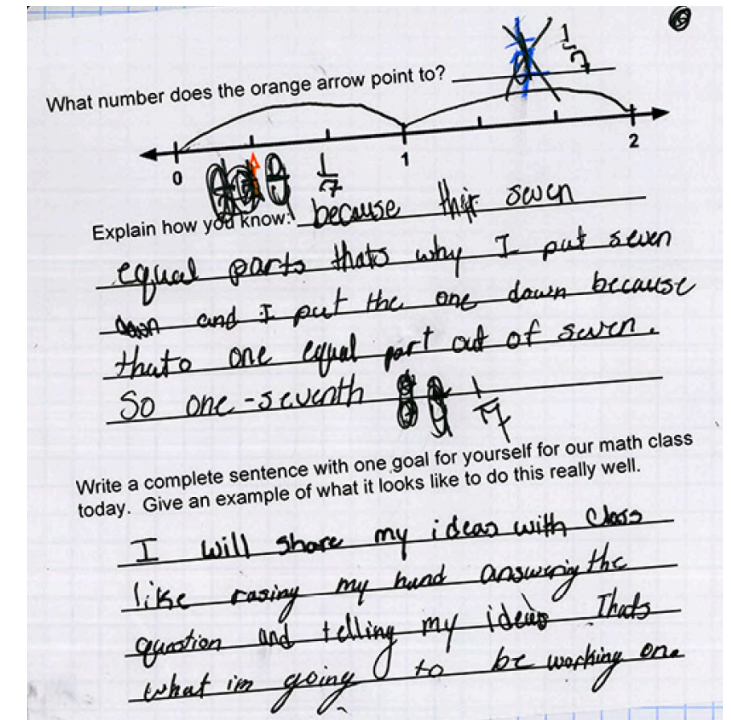 What number does the orange arrow point to? 1/7
0 1 2
1/7
Explain how you know: because thir seven
equal parts thats why I put seven
down and I put the one down because
thats one equal part out of seven.
So one-seventh 1/7
Write a complete sentence with one goal for yourself for our math class
today. Give an example of what it looks like to do this really well.
I will share my ideas with class
like rasing my hand answering the
question and telling my ideas Thats
what im going to be working one.